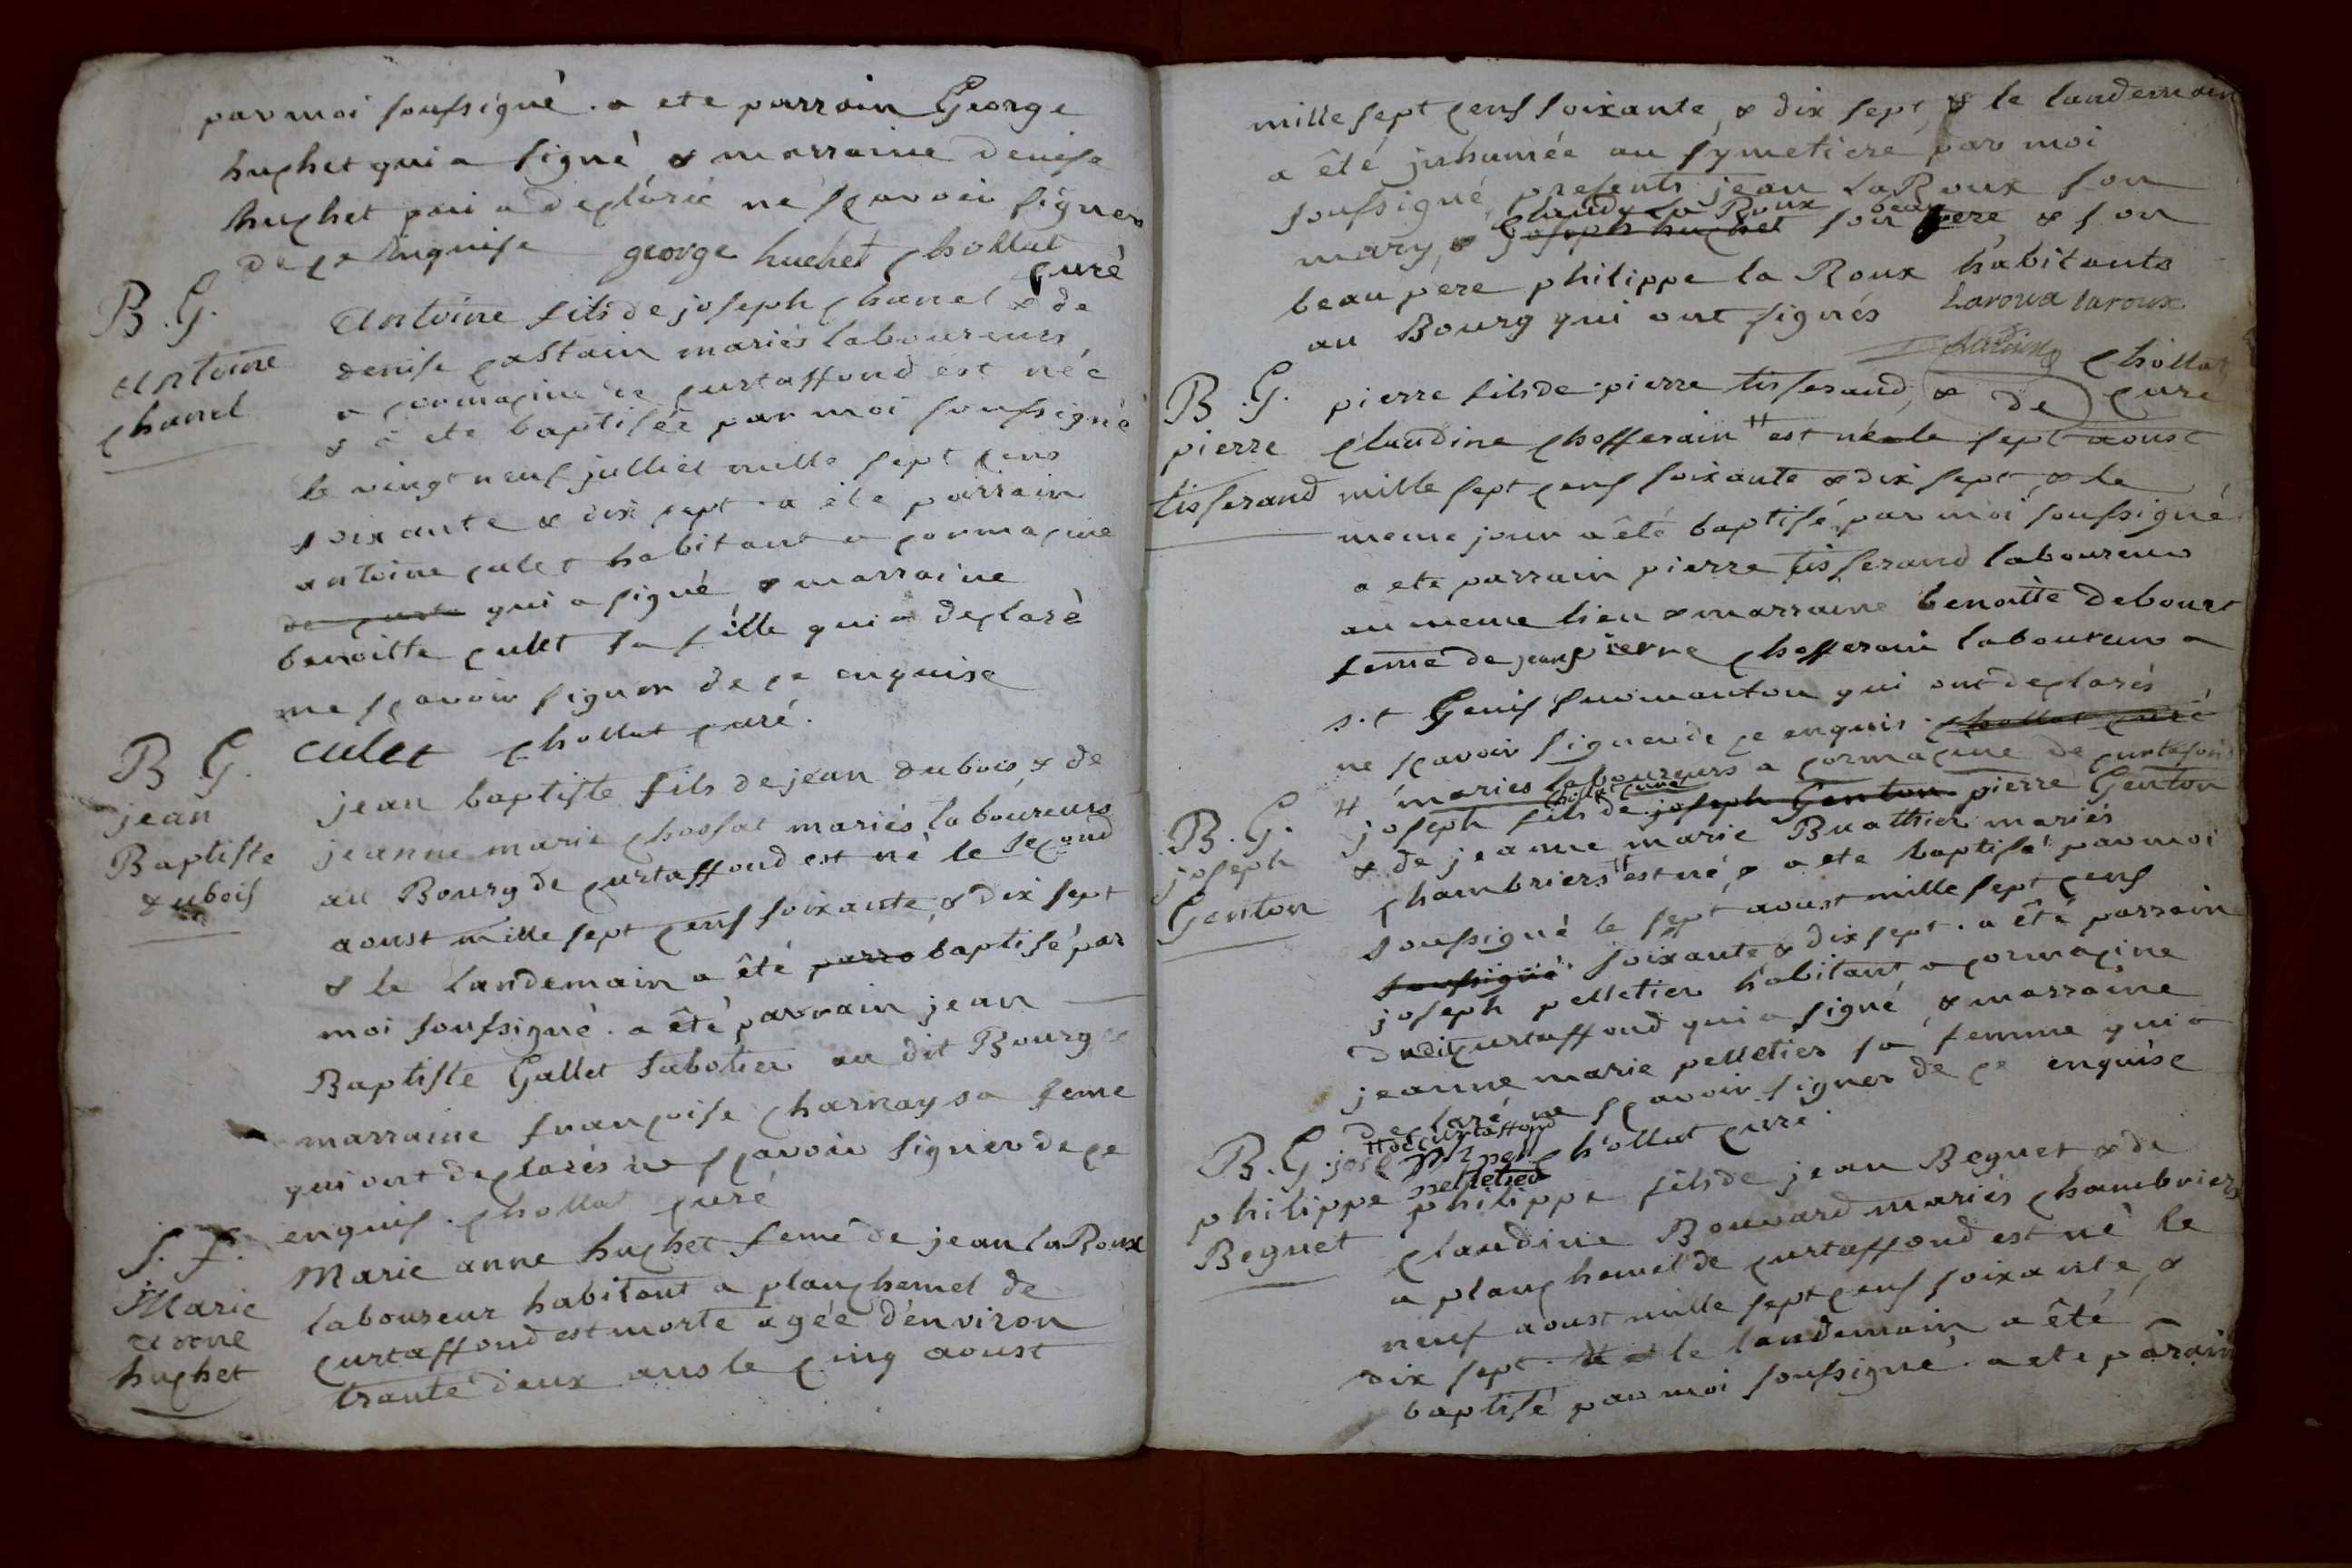 par moi soussigné. a ete parrain George
huchet qui a signé & marraine denise
huchet qui a declarée ne scavoir signer
de ce enquise george huchet chollat
curé
B. G.
Antoine
chanel
Antoine fils de joseph chanel & de
denise castain mariés laboureurs
a cormacine de curtaffond est née
& a ete baptisée par moi soussigné
le vingt neuf julliet mille sept cens
soixante & dix sept. a ete parrain
antoine culet habitant a cormacine
qui a signé & marraine
benoitte culet sa fille qui a declaré
ne scavoir signer de ce enquise
culet chollat curé.
B G.
jean
Baptiste
dubois
jean baptiste fils de jean dubois & de
jeanne marie chossat mariés laboureurs
au Bourg de curtaffond est né le second
aoust mille sept cens soixante, & dix sept
& le landemain a été parra baptisé par
moi soussigné. a été parrain jean
Baptiste Gallet sabotier au dit Bourg &
marraine françoise charnay sa feme
qui ont declarés ne scavoir signer de ce
enquis. chollat curé
S. F.
Marie
anne
huchet
Marie anne huchet feme de jean la Roux
laboureur habitant a planchemel de
curtaffond est morte agée d'environ
trante deux ans le cinq aoust
mille sept cens soixante, & dix sept, & le landemain
a été inhumée au symetiere par moi
soussigné, presents jean LaRoux son
claude la Roux beau
mary, & joseph huchet son pere & son
beau pere philippe la Roux habitants
au Bourg qui ont signés Laroux laroux
chollat
curé
B. G.
pierre
tisserand
pierre fils de pierre tisserand, & de
claudine chofferain # est né le sept aoust
mille sept cens soixante & dix sept, & le
meme jour a été baptisé par moi soussigné
a ete parrain pierre tisserand laboureur
au meme lieu & marraine benoitte debourt
feme de jean pierre chofferain laboureur a
s.t Genis surmanton qui ont declarés
ne scavoir signer de ce enquis. chollat curé
# mariés laboureurs a cormacine de curtafond
chollat curé
B. G.
joseph
Genton
joseph fils de joseph Genton pierre Genton
& de jeanne marie Buathier mariés
chambriers # est né, & a ete baptisé par moi
soussigné le sept aoust mille sept cens
soussigné soixante & dix sept. a été parrain
joseph pelletier habitant a cormacine
dudit curtaffond qui a signé, & marraine
jeanne marie pelletier sa femme qui a
declaré ne scavoir signer de ce enquise
# de curtaffond
chollat curé.
pelletier
B. G.
philippe
Beguet
philippe fils de jean Beguet & de
claudine Bouvard mariés chambriers
a planchemel de curtaffond est né le
neuf aoust mille sept cens soixante, &
dix sept. & le landemain a été
baptisé par moi soussigné. a ete parain